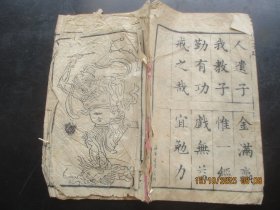 人遺子 金滿
我教子 惟一經
勤有功 戲無
戒之哉 宜勉力